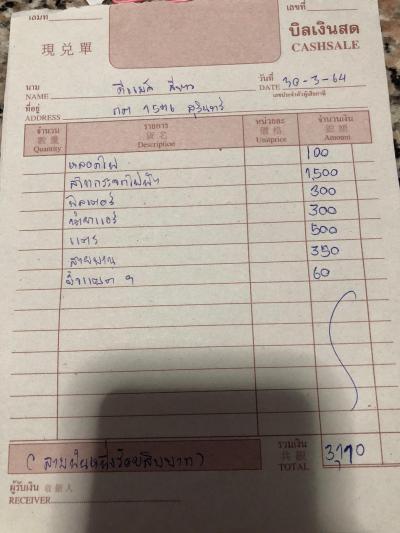 เล่มที่
เลขที่
現兑單
บิลเงินสด
CASHSALE
นาม
NAME
ดีแม็ก สีขาว
วันที่
DATE 30-3-64
เลขประจำตัวผู้เสียภาษี
ที่อยู่
ADDRESS
1576 สุรินทร์
จำนวน รายการ หน่วยละ จำนวนเงิน
數量 貨名 價格 銀額
Quantity Description Unitprice Amount
หลอดไฟ 100
1,500
300
300
500
สายพาน 350
60
(สามพันหนึ่งร้อยสิบบาท)
รวมเงิน
共銀
TOTAL
3,110
ผู้รับเงิน 收銀人
RECEIVER